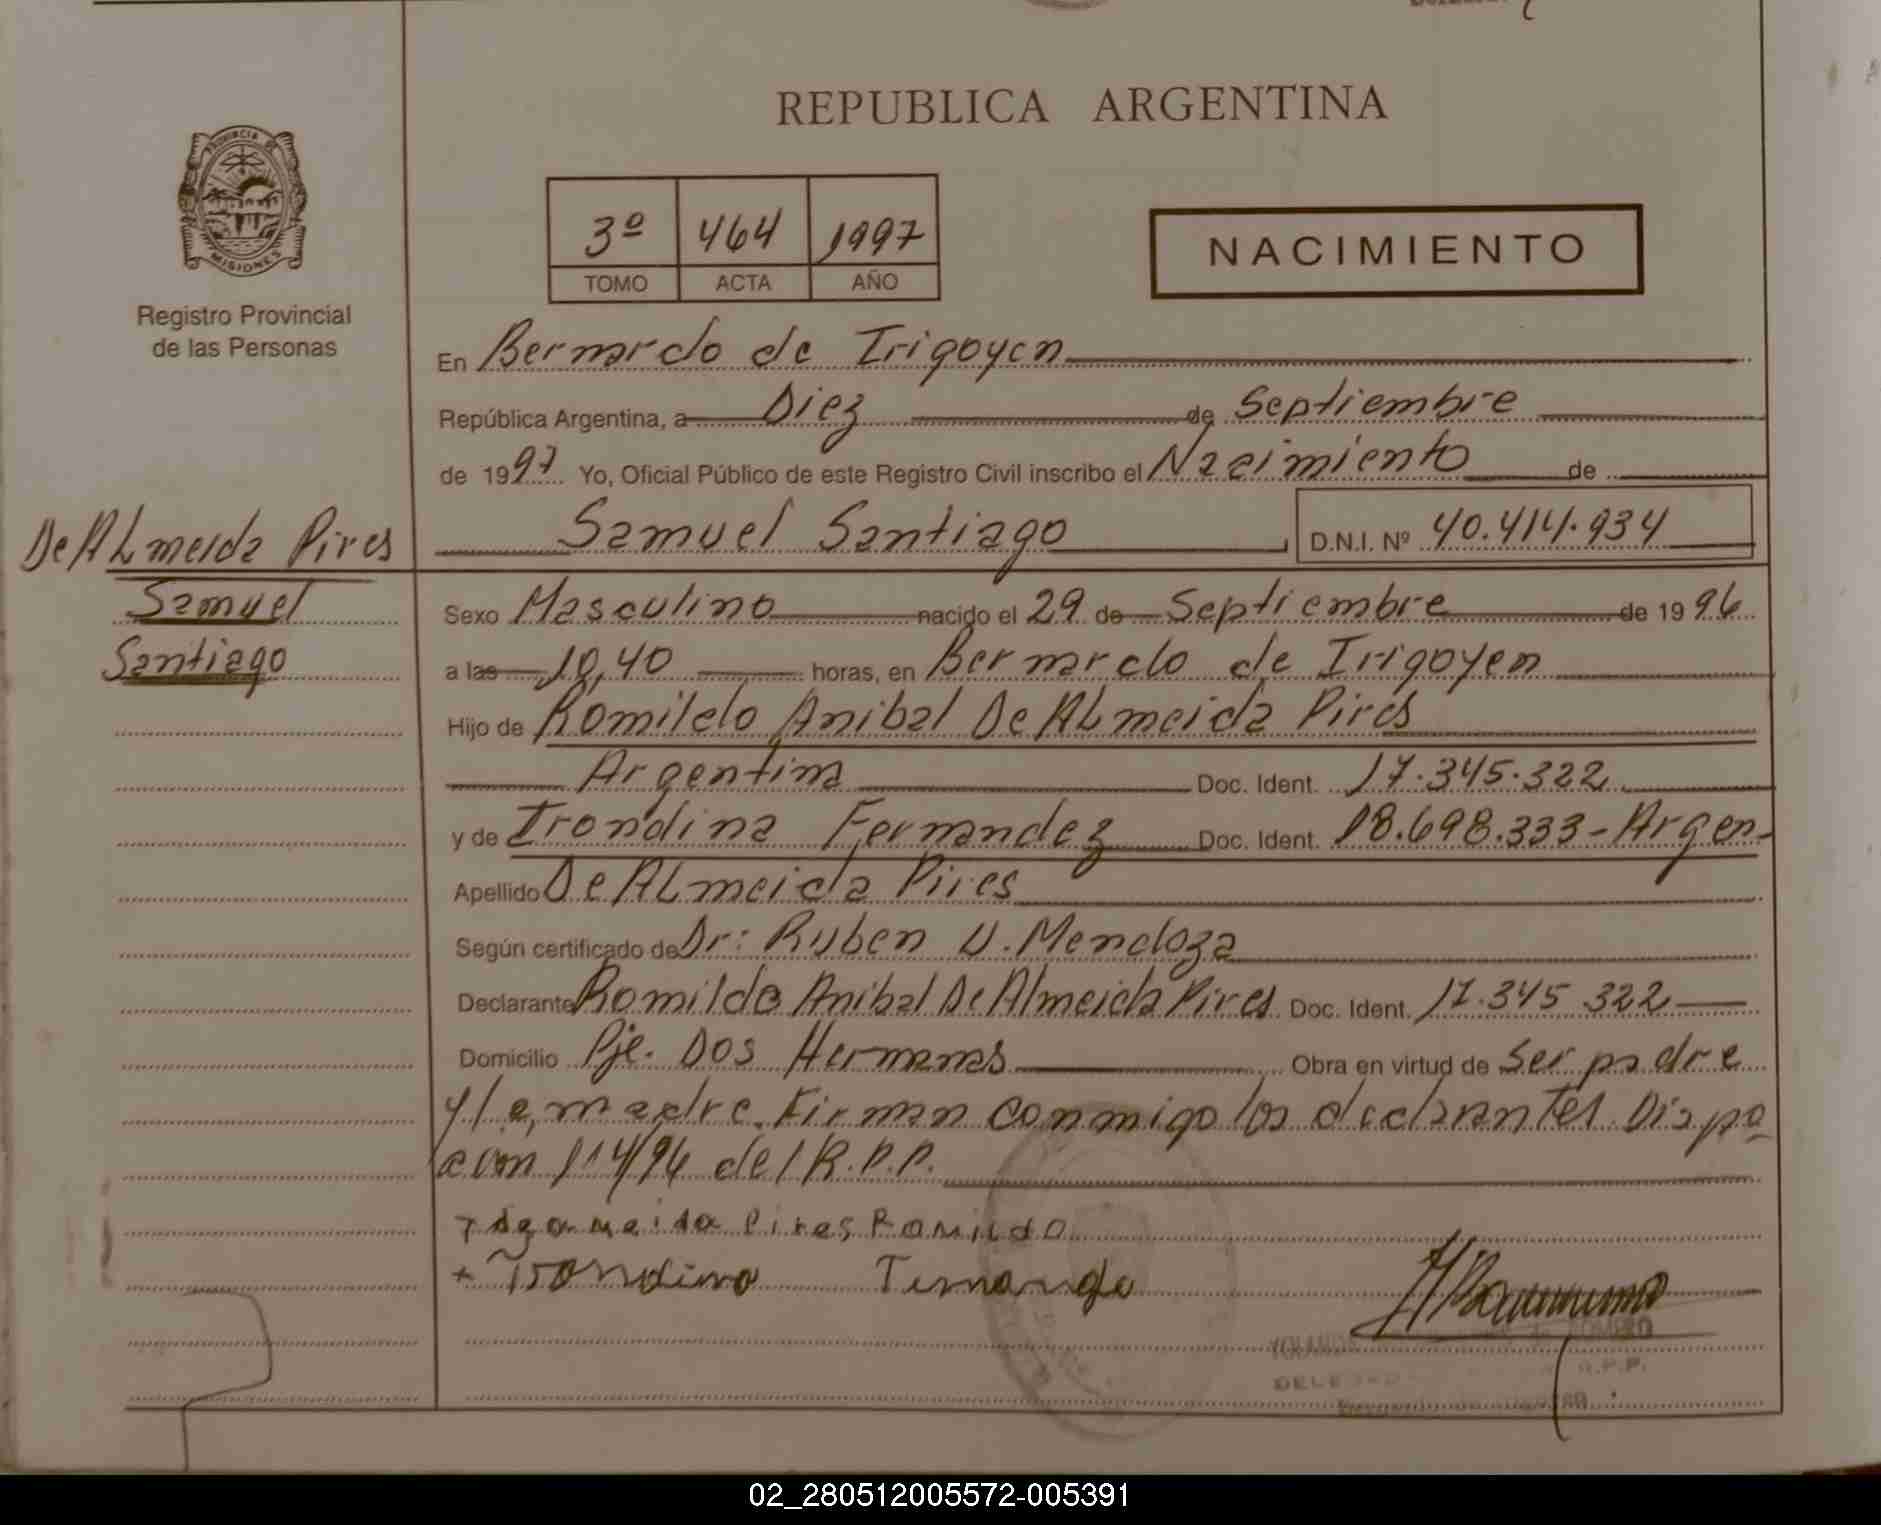 REPUBLICA ARGENTINA
PROVINCIA DE MISIONES
Registro Provincial
de las Personas
3º 464 1997
TOMO ACTA AÑO
NACIMIENTO
En Bernardo de Irigoyen
República Argentina, a Diez de Septiembre
de 1997 Yo, Oficial Público de este Registro Civil inscribo el Nacimiento de
Samuel Santiago D.N.I. Nº 40.414.934
De ALmeida Pires
Samuel
Santiago
Sexo Masculino nacido el 29 de Septiembre de 1996
a las 10,40 horas, en Bernardo de Irigoyen
Hijo de Romildo Anibal De ALmeida Pires
Argentina Doc. Ident. 17.345.322
y de Irondina Fernandez Doc. Ident. 18.698.333-Argen-
Apellido De ALmeida Pires
Según certificado de Dr: Ruben U. Mendoza
Declarante Romildo Anibal De Almeida Pires Doc. Ident. 17.345 322
Domicilio Pje. Dos Hermanas Obra en virtud de Ser padre
y la madre. Firman conmigo los declarantes. Dispo
cion 114/96 del R.P.P.
Pires Romildo
YOLANDA
DELE
R.P.P.
02_280512005572-005391